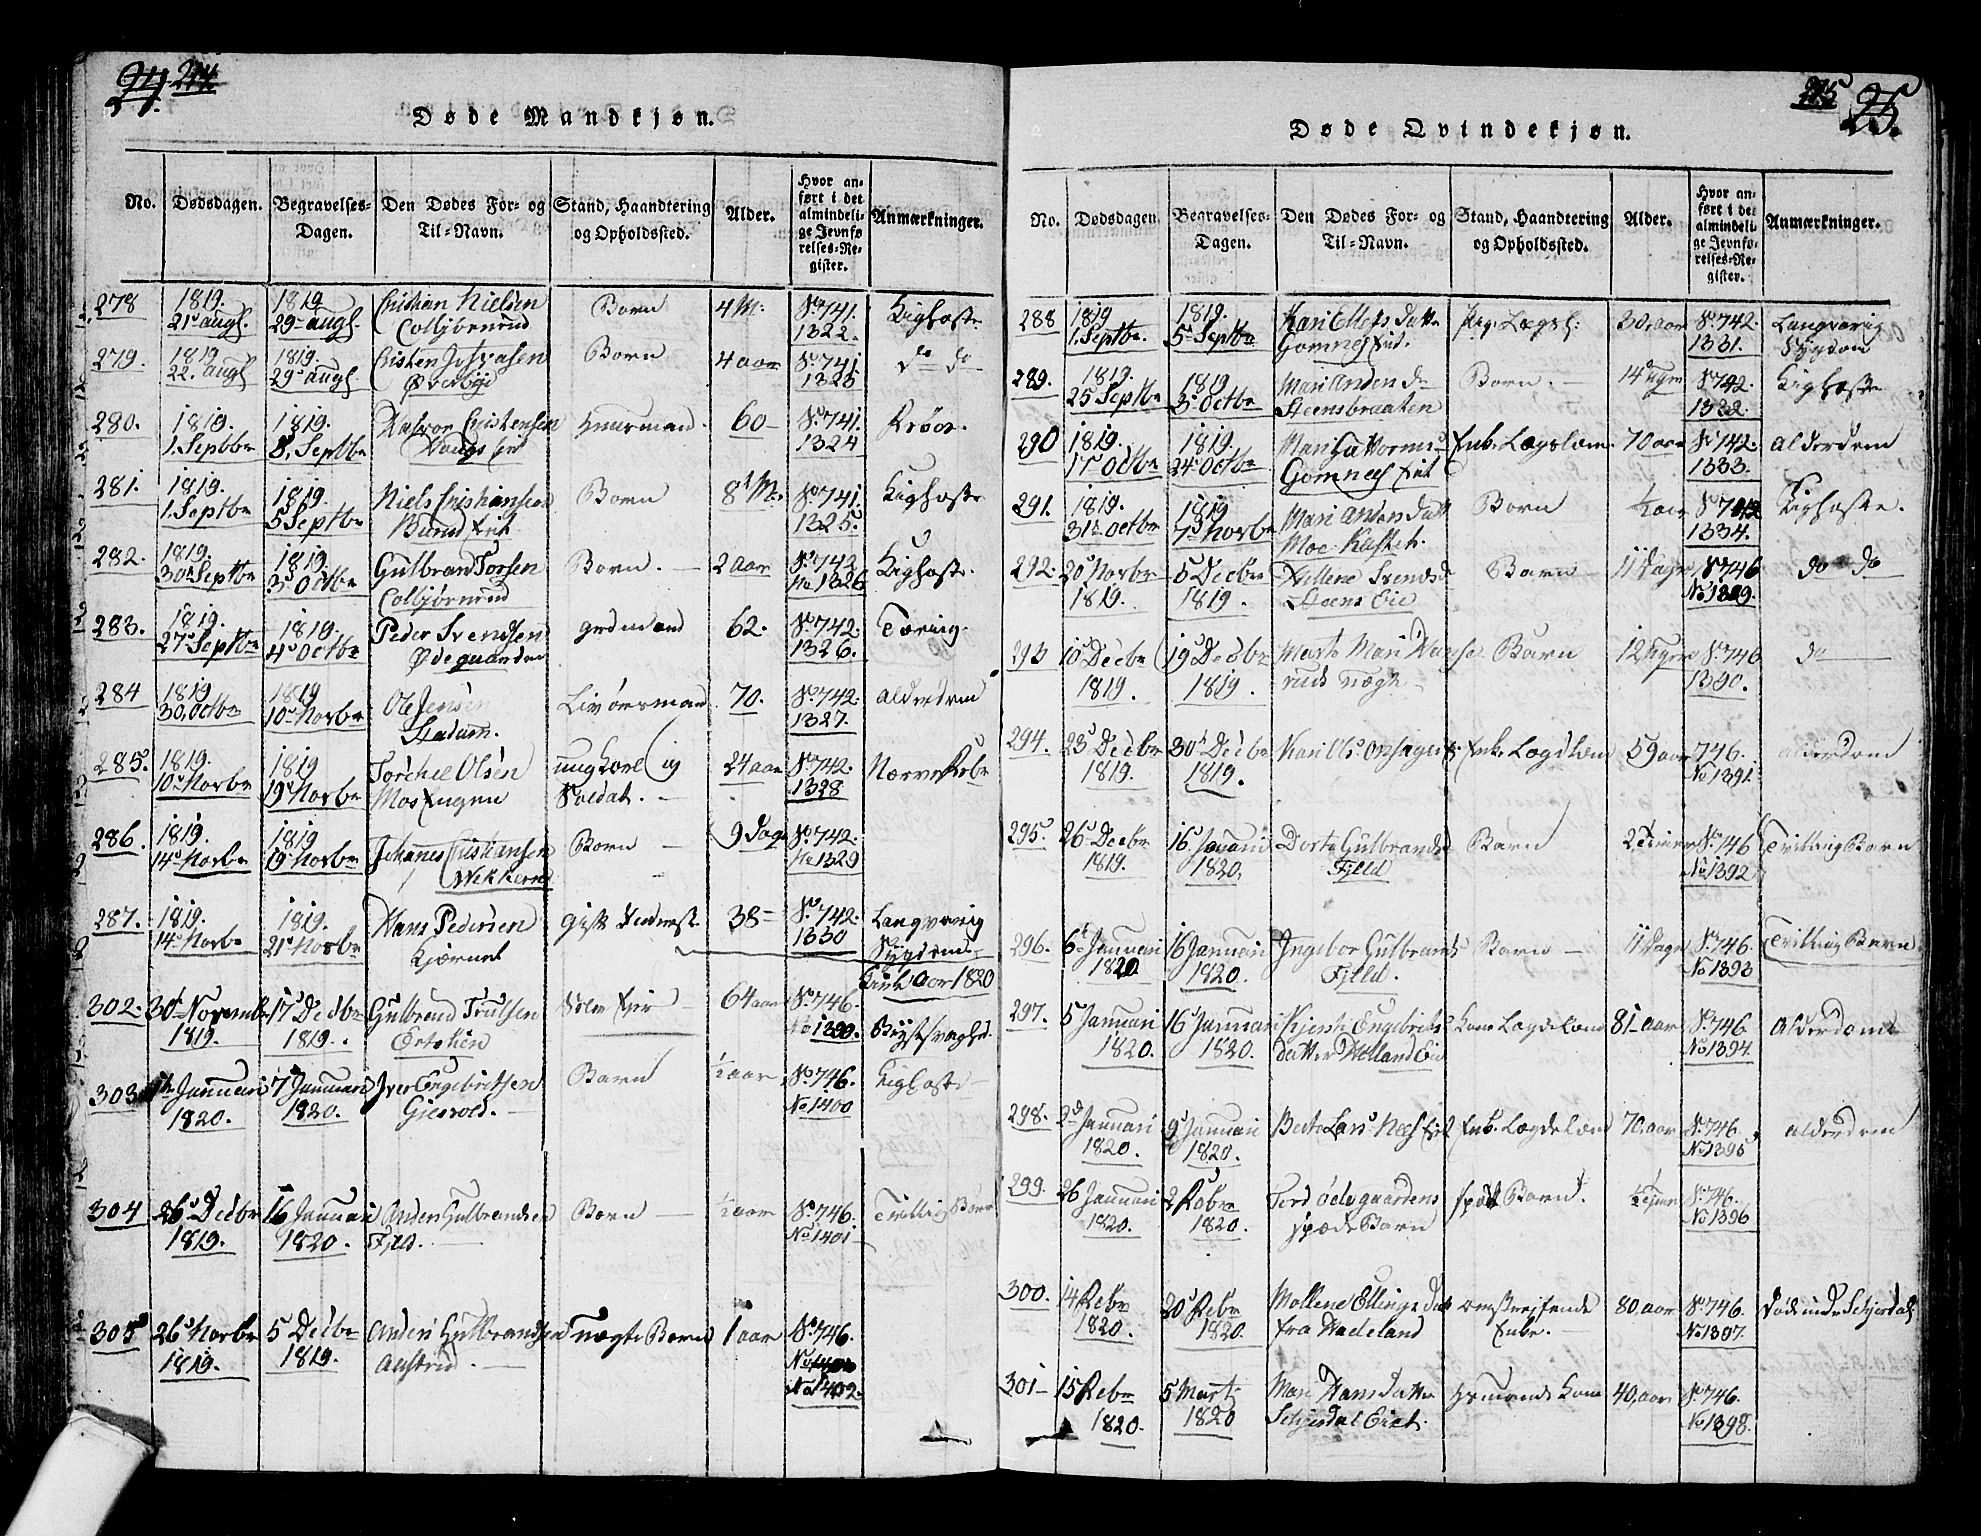 24. 214.
Døde Mandkjøn.
No. Dødsdagen. Begravelses-Dagen. Den Dødes For- og Til-Navn. Stand, Haandtering og Opholdssted. Alder. Hvor anført i det almindelige Jevnførelses-Register. Anmærkninger.
278 1819. 21 augs. 1819 29 augs. Cristian Nielsen Colbjörnrud Barn 4 M. No 741. 1322. Kighoste
279. 1819. 22. augs 1819. 29 augs Barn 4 aar No 741. 1323 do do
280. 1819. 1. Septbr. 1819. 8. Septbr Cristensen 60 No 741. No 1324
281. 1819. 1. Septbr 1819. 5 Septbr Niels Cristiansen Barn 8 M. No 741. 1325. Kighoste
282. 1819. 30 Septbr 1819. 3 Octbr Gulbrand Torsen Colbjörnrud Barn. 2 aar No 742 No 1326 Kighoste.
283. 1819. 27 Septbr 1819. 4 Octbr Peder Svendsen Ødegaarden grdmand 62. No 742. 1326. Tæring.
284 1819 30. Octbr 1819 10 Novbr Ole Jensen Stadum. 70. No 742. 1327. alderdom
285. 1819. 10 Novbr 1819 19 Novbr Torchel Olsen ungkarl og Soldat. 24 aar No 742. 1328
286. 1819. 14 Novbr 1819 19 Novbr Johanes Cristiansen Barn 9 Dage No 742. No 1329
287. 1819. 14 Novbr 1819. 21 Novbr Hans Pedersen Kjærnet 38 No 742. 1330 Langvarig Sygdom
Kirke Aar 1820
302. 30 November 1819. 17 Decbr 1819. Gulbrand Trulsen 64 aar No 746. No 1399. Brystsvaghed.
303 Januari 1820. 7 Januari 1820. Iver Engebritsen Barn ½ aar No 746. No 1400 Kighoste
304 26 Decbr 1819. 16 Januari 1820. Anders Gulbrandsen Fjeld. Barn ½ aar No 746. No 1401 Tvilling Barn
305 26 Novbr 1819. 5 Decbr 1819. Anders Gulbrandsen uægte Barn 1 aar No 746. No 1402.
215 25.
Døde Qvindekjøn.
No. Dødsdagen. Begravelses-Dagen. Den Dødes For- og Til-Navn. Stand, Haandtering og Opholdssted. Alder. Hvor anført i det almindelige Jevnførelses-Register. Anmærkninger.
288 1819 1. Septbr. 1819. 5 Septbr Kari Ellefsdatter Gomnes Eiet. 30 aar No 742. 1331. Langvarig Sygdom
289. 1819. 25 Septbr 1819. 3 Octbr Mari Andersdr Steensbraaten Barn. 14 Uger No 742. 1332. Kighoste
290 1819. 17 Octbr 1819. 24 Octbr Mari Guttorms Gomnes Eiet Enke. Lægdslem 70 aar No 742. 1333. alderdom
291. 1819. 31 Octbr 1819 7 Novbr Mari Andersdatter Moe Barn ½ aar No 742 1334. Kighoste.
292. 20 Novbr 1819. 5 Decbr 1819. Hellene Svendsd Steens Eie Barn 11 Dage No 746 do do
293 10 Decbr 1819. 19 Decbr 1819. Marte Mari uægte Barn 12 Uger No 746 1390. do
294. 23 Decbr 1819. 30 Decbr 1819. Kari Ols Onsager Enke Lægdslem 59 aar 746. No 1391. alderdom
295. 26 Decbr 1819. 16 Januari 1820. Dorte Gulbrands Fjeld Barn 2 Timer No 746 No 1392 Tvilling Barn
296. 6 Januari 1820 16 Januari 1820. Ingebor Gulbrands Fjeld. Barn 11 Dage No 746. No 1393 Tvilling Barn
297. 5 Januari 1820. 16 Januari 1820. Kjersti Engebrits datter Helland Eie Kone Lægdslem 81 aar No 746 No 1394. Alderdom
298. 2 Januari 1820. 9 Januari 1820. Berte Lars Næs Eiet Enke. Lægdslem 70. aar No 746. No 1395 alderdom
299. 26 Januari 1820. 2 Febr 1820. Ødegaardens spæde Barn spæd Barn. No 746. No 1396
300. 14 Febr 1820. 20 Febr 1820. Mollene Ellingsdatter fra Hadeland omstreifende Enke. 80 aar No 746. No 1397.
301 15 Febr 1820. 5 Marti 1820 Mari Hansdatter Eiet. Husmands Kone 40. aar No 746. No 1398.